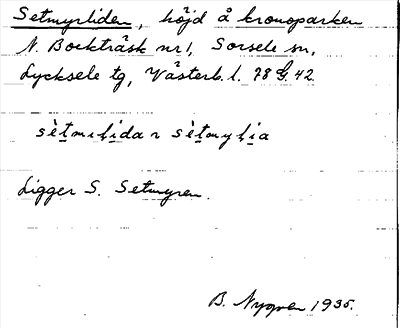 Setmyrliden, höjd å kronoparken
N. Bocktråsk nr 1, Sorsele sn,
Lycksele tg, Västerb. l. 78 G. 42
sètmıl̥ida r sètmyl̥ia
Ligger S. Setmyren.
B. Nygren 1935.